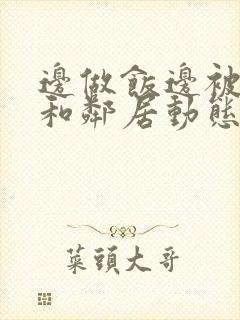 邊做飯邊被
和鄰居動態
菜頭大哥